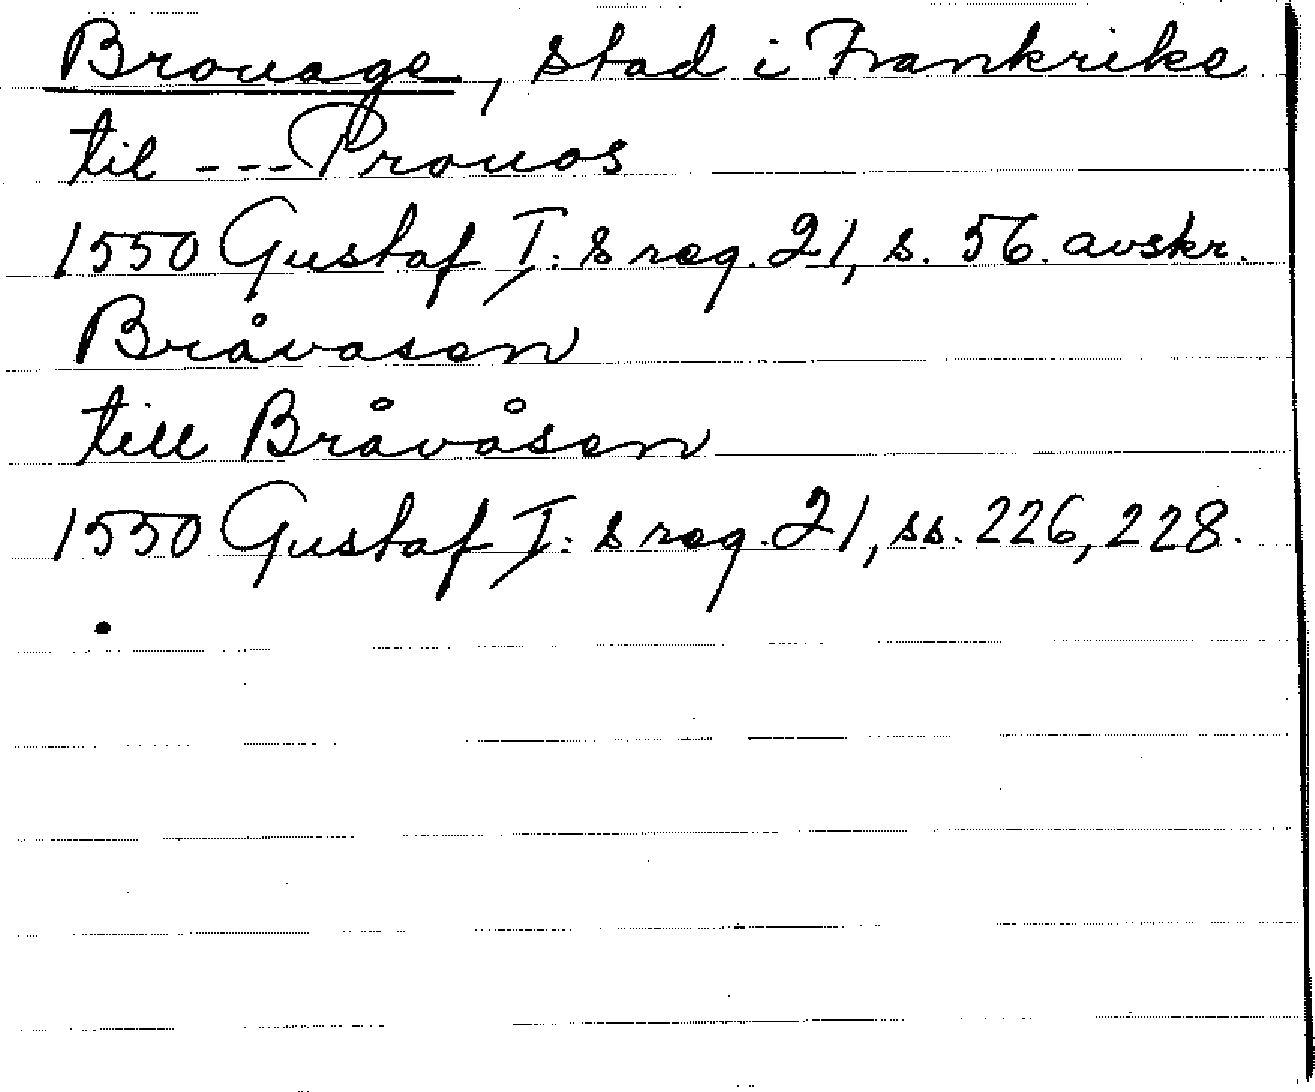 Brouage, stad i Frankrike
til --- Prouos
1550 Gustaf I:s reg. 21, s. 56. avskr.
Bråvasen
till Bråvåsen
1550 Gustaf I:s reg. 21, ss. 226, 228.